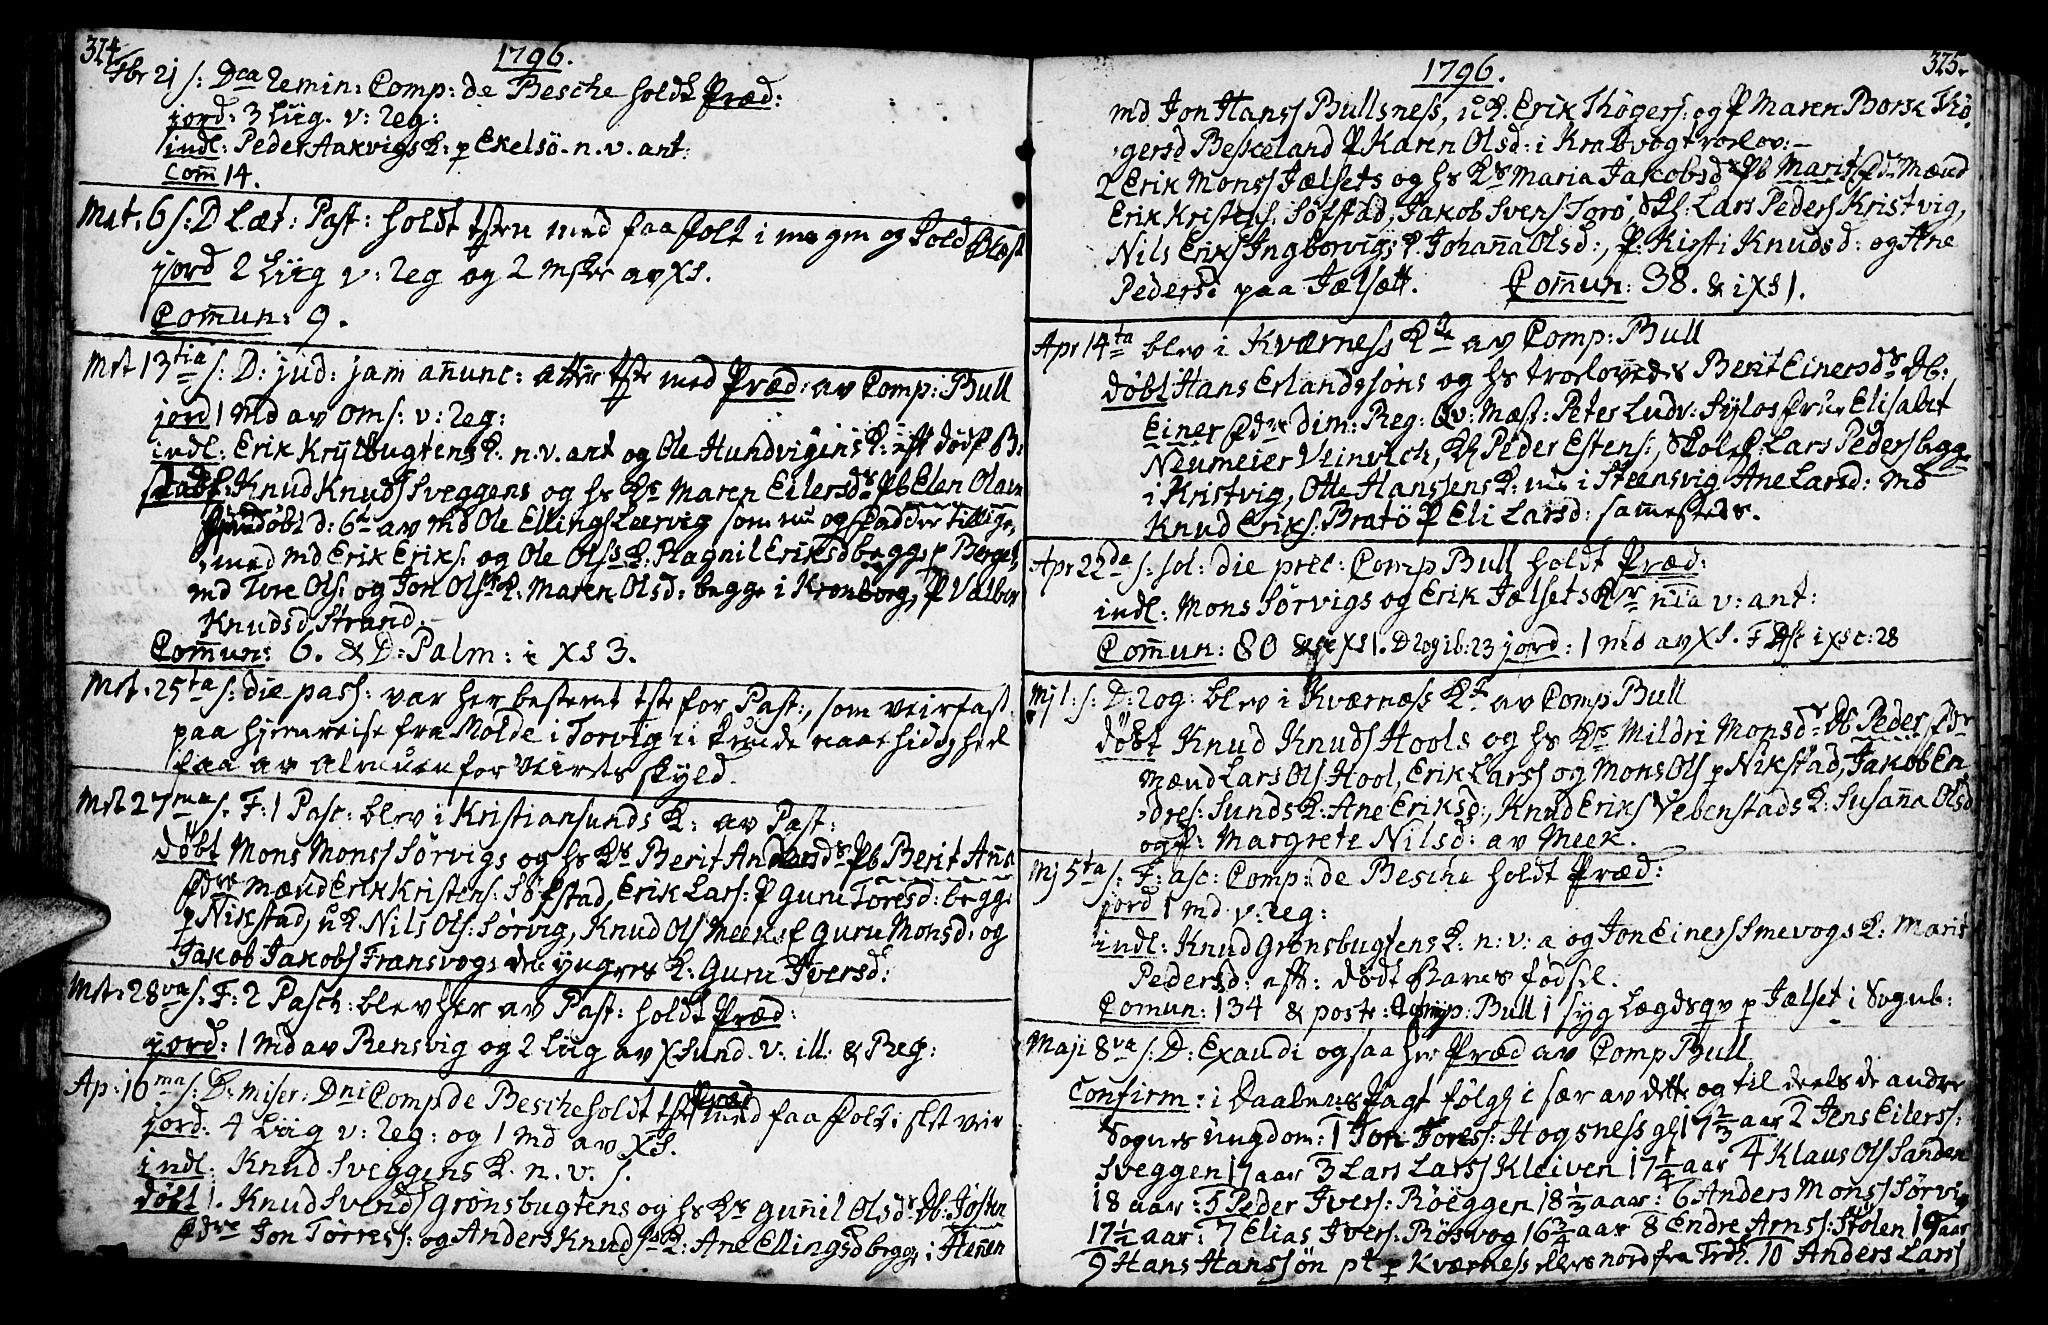 324
1796.
Fbr 21 s: Dca 2emin: Comp: de Besche holdt Præd:
jord: 3 Liig. v: 2eg:
indl: Peder Aakvigs K: p Ekelsö. n. v. ant:
Com̄ 14.
Mrt. 6 s: D Læt: Past: holdt tsten med faa folk i magm og
jord 2 Liig v: 2eg og 2 av XS.
Com̄un: 9.
Mrt 13tia s: D: jud: jam an̄unc: med Præd: av Comp: Bull
jord 1 Md av Oms: v: 2eg:
indl: Erik Krylbugtens K: n. v. ant og Ole Hundvigens K: eft dødf B:
Knud Knuds Sveggens og hs Ks Maren Eilersdr Pb Elen Olava
døbt d: 6te av Md Ole Ellings Leervig som nu og Fadder tillige,
med Md Erik Eriks: og Ole Ols K: Ragnil Eriksd begge p Berget,
Md Tore Ols: og Jon Ols K: Maren Olsd: begge i Kronborg, P Valbor
Knudsd Strand.
Com̄un: 6. & D: Palm: i XS 3.
Mrt. 25ta s: die pass: var her bestemt tste for Past:, som veirfast
paa hjemreise fra Molde i Torvig ei kunde naae hid og her
faa av for Veirets skyld.
Mrt 27ma s. F: 1 Pasc: blev i Kristiansunds K: av Past:
døbt Mons Mons Sørvigs og hs Ks Berit Andersdr Pb Berit An̄a
Fdre Mænd Erik Kristens: Søfstad, Erik Lars: P Guru Toresd: begge
p Nikstad, uK. Nils Ols: Sørvig, Knud Ols Meek, P Guru Monsd: og
Jakob Jakobs Fransvogs de: yngres K: Guru Iversd:
Mrt: 28va s: F: 2 Pasch: blev her av Past: holdt Præd:
jord: 1 Md av Rensvig og 2 Liig av XSund. v. ill: & Reg:
Ap: 10ma s: D: miser: Dni Comp de Besche holdt tste Præd med faa folk i slet veir
jord: 4 Liig v: 2eg: og 1 Md av XS.
indl: Knud Sveggens K. n. v. s.
døbt 1. Knud Svends Grønsbugtens og hs Ks Gun̄il Olsdr Db: Josten
Fdre Jon Torres: og Anders Knuds K: Ane Ellingsd begge i Hen̄en
325
1796.
Md Jon Hanss Bullsness, uK: Erik Thøgers: og P Maren Borsk Thö-
gersd Besceland P Karen Olsd: i Krabvog trolov:
2 Erik Mons Jælsets og hs Ks Maria Jakobsdr Pb Marit Fdre Mænd
Erik Kristens: Søfstad, Jakob Svens Torö, Lars Peders Kristvig,
Nils Eriks Ingborvigs K. Johan̄a Olsd:, P: Kirsti Knudsd: og Ane
Pedersd paa Jælsett. Com̄un: 38. & i XS 1.
Apr 14ta blev i Kværness Kke av Comp: Bull
døbt Hans Erlandssöns og hs trolovede K Berit Einersdr Db:
Einer Fdre dim: Reg: Qv: Mæst: Peter Ludv: Sylos frue Elisabet
Neumeier Veinvich, Peder Estens:, Lars Peders begge
i Kristvig, Otte Hanssens K: nu i Steensvig Ane Larsd: Md
Knud Eriks: Bratö P Eli Larsd: sam̄esteds.
Apr 22de s: sol: die prec: Comp Bull holdt Præd:
indl: Mons Sørvigs og Erik Jælsets Kr v: ant:
Com̄un: 80 & i XS 1. D 2og ib: 23 jord: 1 Md av XS. F Asc i XS c: 28
Mj 1: s: D: 2og: blev i Kværness Kk av Comp Bull
døbt Knud Knuds Hools og hs Ks Mildri Monsdr Db. Peder, Fdr
Mænd Lars Ols Hool, Erik Lars og Mons Ols p Nikstad, Jakob En-
dres: Sunds K: Ane Eriksd:, Knud Eriks Vebenstads K: Susan̄a Olsd
og P: Margrete Nilsd: av Meek.
Mj 5ta s: F: asc: Comp: de Besche holdt Præd:
jord 1 Md v: 2eg:
indl: Knud Grønsbugtens K: n: v: a og Jon Einers Smevogs K: Marit
Pedersd: eft: dødt Barns fødsel.
Comun: 134 & post: Comp: Bull 1 syg Lægdsqv p Jælset i Sognb:
Maji 8va s: D: Exaudi ogsaa her Præd av Comp Bull
Confirm: i Daabens Pagt følgh i sær av dette og til deels de andre
Sognes ungdom: 1 Jon Tores: Hogsness gl 17 2/3 aar 2 Jens Eilers:
Sveggen 17 aar 3 Lars Lars Kleiven 17 1/4 aar 4 Klaus Ols Sanden
18 aar: 5 Peder Ivers: Röeggen 18 1/2 aar: 6 Anders Mons Sørvig
17 1/2 aar: 7 Elias Ivers: Rösvog 16 3/4 aar 8 Endre Arns: Stölen 19 aar
9 Hans Hanssön pt p Kværness ellers nord fra Trdh. 10 Anders Lars